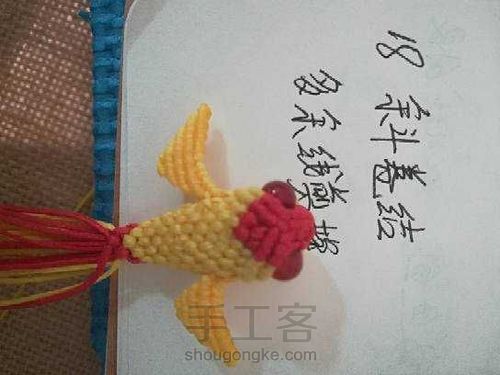 18 斜卷结
多余线剪掉
手工客
shougongke.com